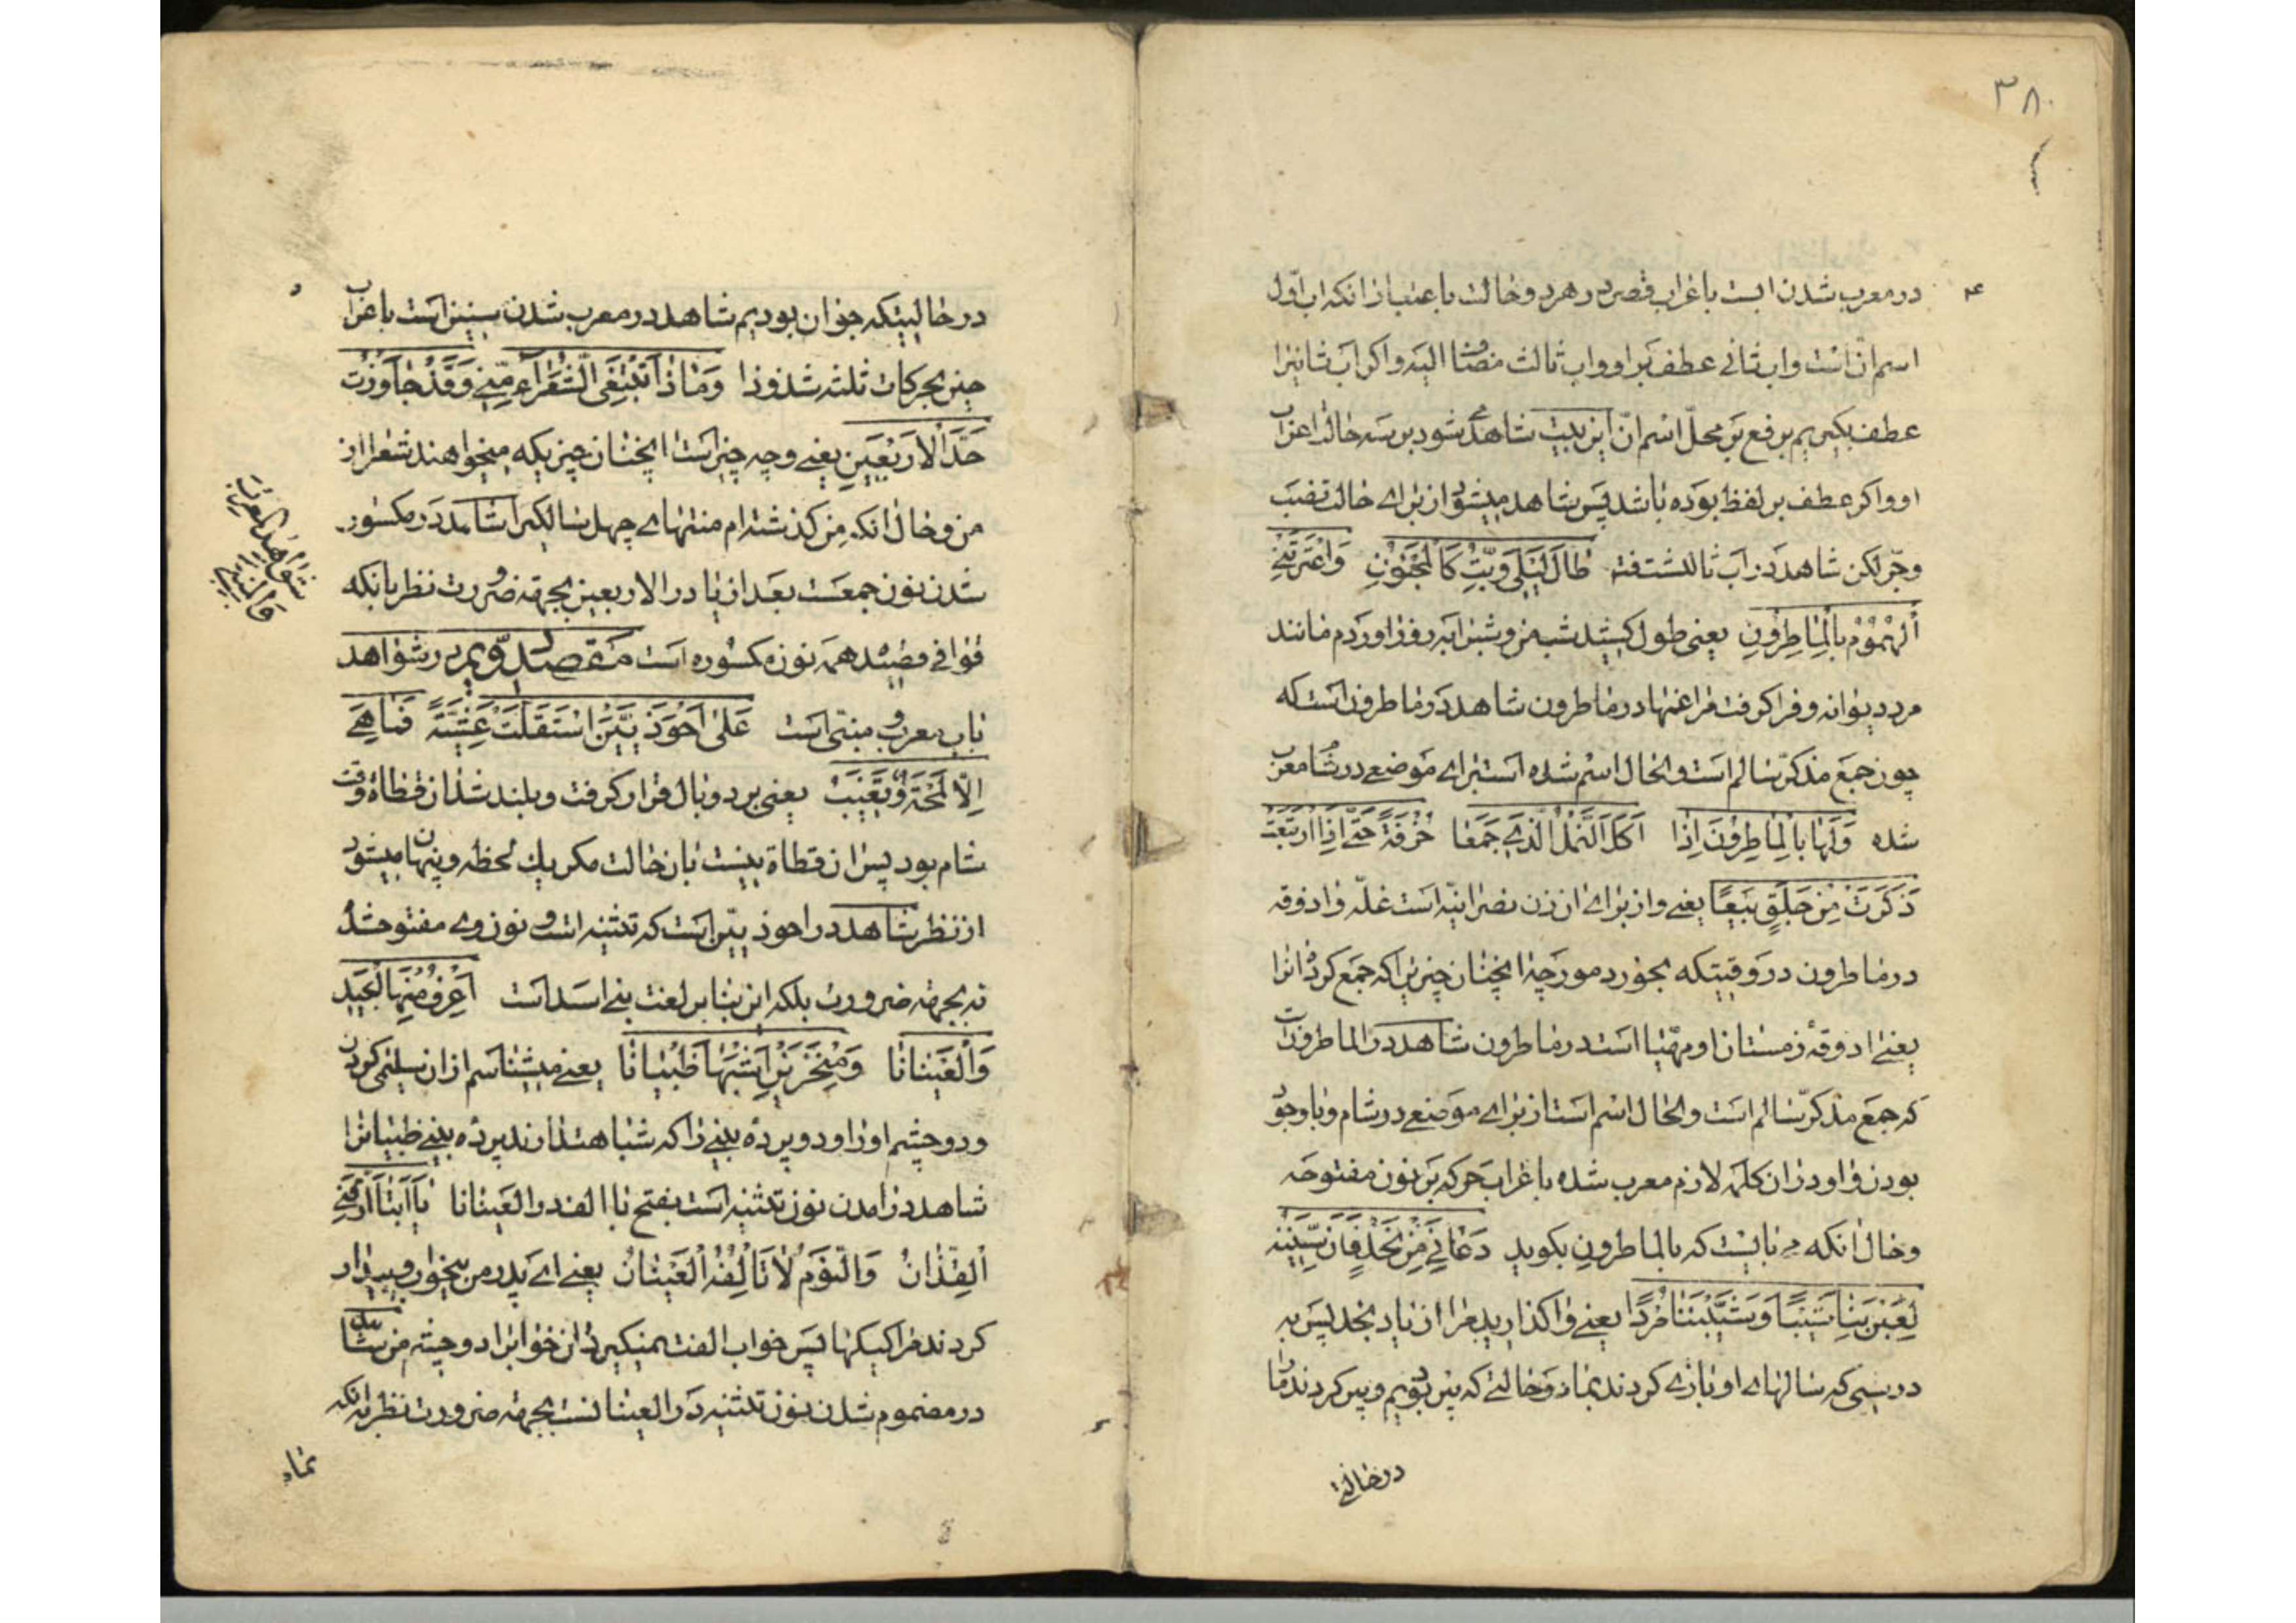 ۳۸
در معرب شدن ابست باعراب قصر در هر دو حالت باعتبار انکه اب اوّل
اسم انّ است واب ثانی عطف بر او واب ثالث مضاف الیه واکر اب ثانیرا
عطف بکیریم برفع بر محلّ اسم انّ این بیت شاهد میشود بر سه حالت اعراب
او واکر عطف بر لفظ بوده باشد پس شاهد میشود از برای حالت نصب
وجرّ لکن شاهد در اب ثالثست فقط طالَ لَیْلی وَبِتُّ کَالْمَجْنُونِ وَاعْتَرَتْنِی
اَلْهُمُومُ بِالْماطِرُونِ یعنی طول کشید شب من وشبرا به روز اوردم مانند
مرد دیوانه وفرا کرفت مرا غمها در ماطرون شاهد در ماطرون است که
چون جمع مذکّر سالم است والحال اسم شده است برای موضعی در شام معرب
شده وَلَها بِالْماطِرُونَ اِذا اَکَلَ النَّمْلُ الَّذی جَمَعا خُرْفَةً حَتّی اِذَا ارْتَبَعَتْ
ذَکَرَتْ مِنْ جِلَّقٍ بِیَعًا یعنی واز برای ان زن نصرانیّه است غلّه واذوقه
در ماطرون در وقتیکه بخورد مورچه انچنان چیزیرا که جمع کرده انرا
یعنی اذوقهٔ زمستان او مهیّا است در ماطرون شاهد در الماطرون است
که جمع مذکّر سالم است والحال اسم است از برای موضعی در شام وباوجود
بودن واو در ان کلمه لازم معرب شده باعراب حرکه بر نون مفتوحه
وحال انکه می بایست که بالماطرونِ بکوید دَعانِیَ مِنْ نَجْدٍ فَاِنَّ سِنینَهُ
لَعِبْنَ بِنا شیبًا وَشَیَّبْنَنا مُرْدًا یعنی واکذارید مرا از یاد نجد پس به
درستی که سالهای او بازی کردند بما در حالتی که پیر بودیم وپیر کردند ما را
در حالتی
در حالیتکه جوان بودیم شاهد در معرب شدن سنین است باعراب
حین بحرکات ثلثه شذوذا وَماذا تَبْتَغِی الشُّعَراءُ مِنّی وَقَدْ جاوَزْتُ
حَدَّ الْاَرْبَعینِ یعنی وچه چیز است انچنان چیزیکه میخواهند شعرا از
من وحال انکه من کذشته ام منتهای چهل سالکیرا شاهد در مکسور
شدن نون جمعست بعد از یا در الاربعین بجهة ضرورت نظر بانکه
قوافی قصیده همه نون مکسوره است مقصد دویم در شواهد
باب معرب ومبنی است عَلی اَحْوَذِیَّیْنَ اسْتَقَلَّتْ عَشِیَّةً فَما هِیَ
اِلّا لَمْحَةٌ وَتَغیبُ یعنی بر دو بال قرار کرفت وبلند شد ان قطاة وقت
شام بود پس ان قطاة نیست بان حالت مکر یك لحظه وپنهان میشود
از نظر شاهد در احوذیّین است که تثنیه است ونون وی مفتوح شد
نه بجهة ضرورت بلکه این بنابر لغت بنی اسد است اَعْرِفُ مِنْهَا الْجیدَ
وَالْعَیْنانا وَمِنْخَرَیْنِ اَشْبَها ظَبْیانا یعنی میشناسم از ان سلمی کردن
ودو چشم او را ودو پردهٔ بینی را که شباهت دارند پردهٔ بینی ظبیانرا
شاهد در امدن نون تثنیه است بفتح با الف در العینانا یا اَبَتا اَرَّقَنِی
الْقِذّانُ وَالنَّوْمُ لا تَاْلَفُهُ الْعَیْنانُ یعنی ای پدر من بیخواب وبیدار
کردند مرا کیکها پس خواب الفت نمیکیرد ان خوابرا دو چشم من شاهد
در مضموم شدن نون تثنیه در العینانست بجهة ضرورت نظر بانکه
شواهد المعرب والمبنی